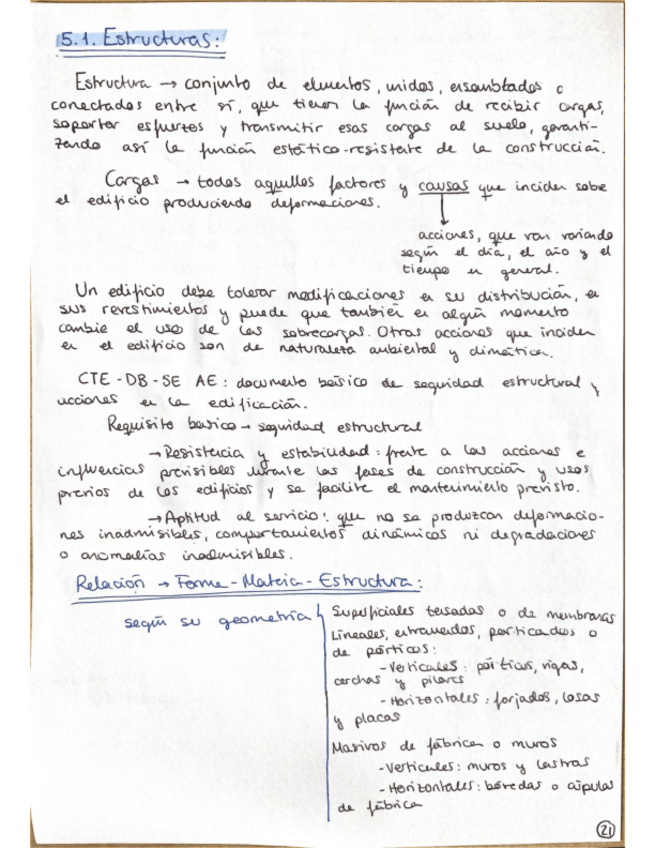 5.1. Estructuras:
Estructura → conjunto de elementos, unidos, ensamblados o
conectados entre sí, que tienen la función de recibir cargas,
soportar esfuerzos y transmitir esas cargas al suelo, garanti-
zando así la función estático-resistente de la construcción.
Cargas → todos aquellos factores y causas que inciden sobre
el edificio produciendo deformaciones.
acciones, que van variando
según el día, el año y el
tiempo en general.
Un edificio debe tolerar modificaciones en su distribución, en
sus revestimientos y puede que también en algún momento
cambie el uso de las sobrecargas. Otras acciones que inciden
en el edificio son de naturaleza ambiental y climática.
CTE-DB-SE AE: documento básico de seguridad estructural y
acciones en la edificación.
Requisito basico → seguridad estructural
→ Resistencia y estabilidad: frente a las acciones e
influencias previsibles durante las fases de construcción y usos
previos de los edificios y se facilite el mantenimiento previsto.
→ Aptitud al servicio: que no se produzcan deformacio-
nes inadmisibles, comportamientos dinámicos ni degradaciones
o anomalías inadmisibles.
Relación → Forma - Materia - Estructura:
según su geometría
Superficiales tensadas o de membranas
Lineales, entramados, porticados o
de pórticos:
- Verticales: pórticos, vigas,
cerchas y pilares
- Horizontales: forjados, losas
y placas
Masivos de fábrica o muros
- Verticales: muros y lastras
- Horizontales: bóvedas o cúpulas
de fábrica
21